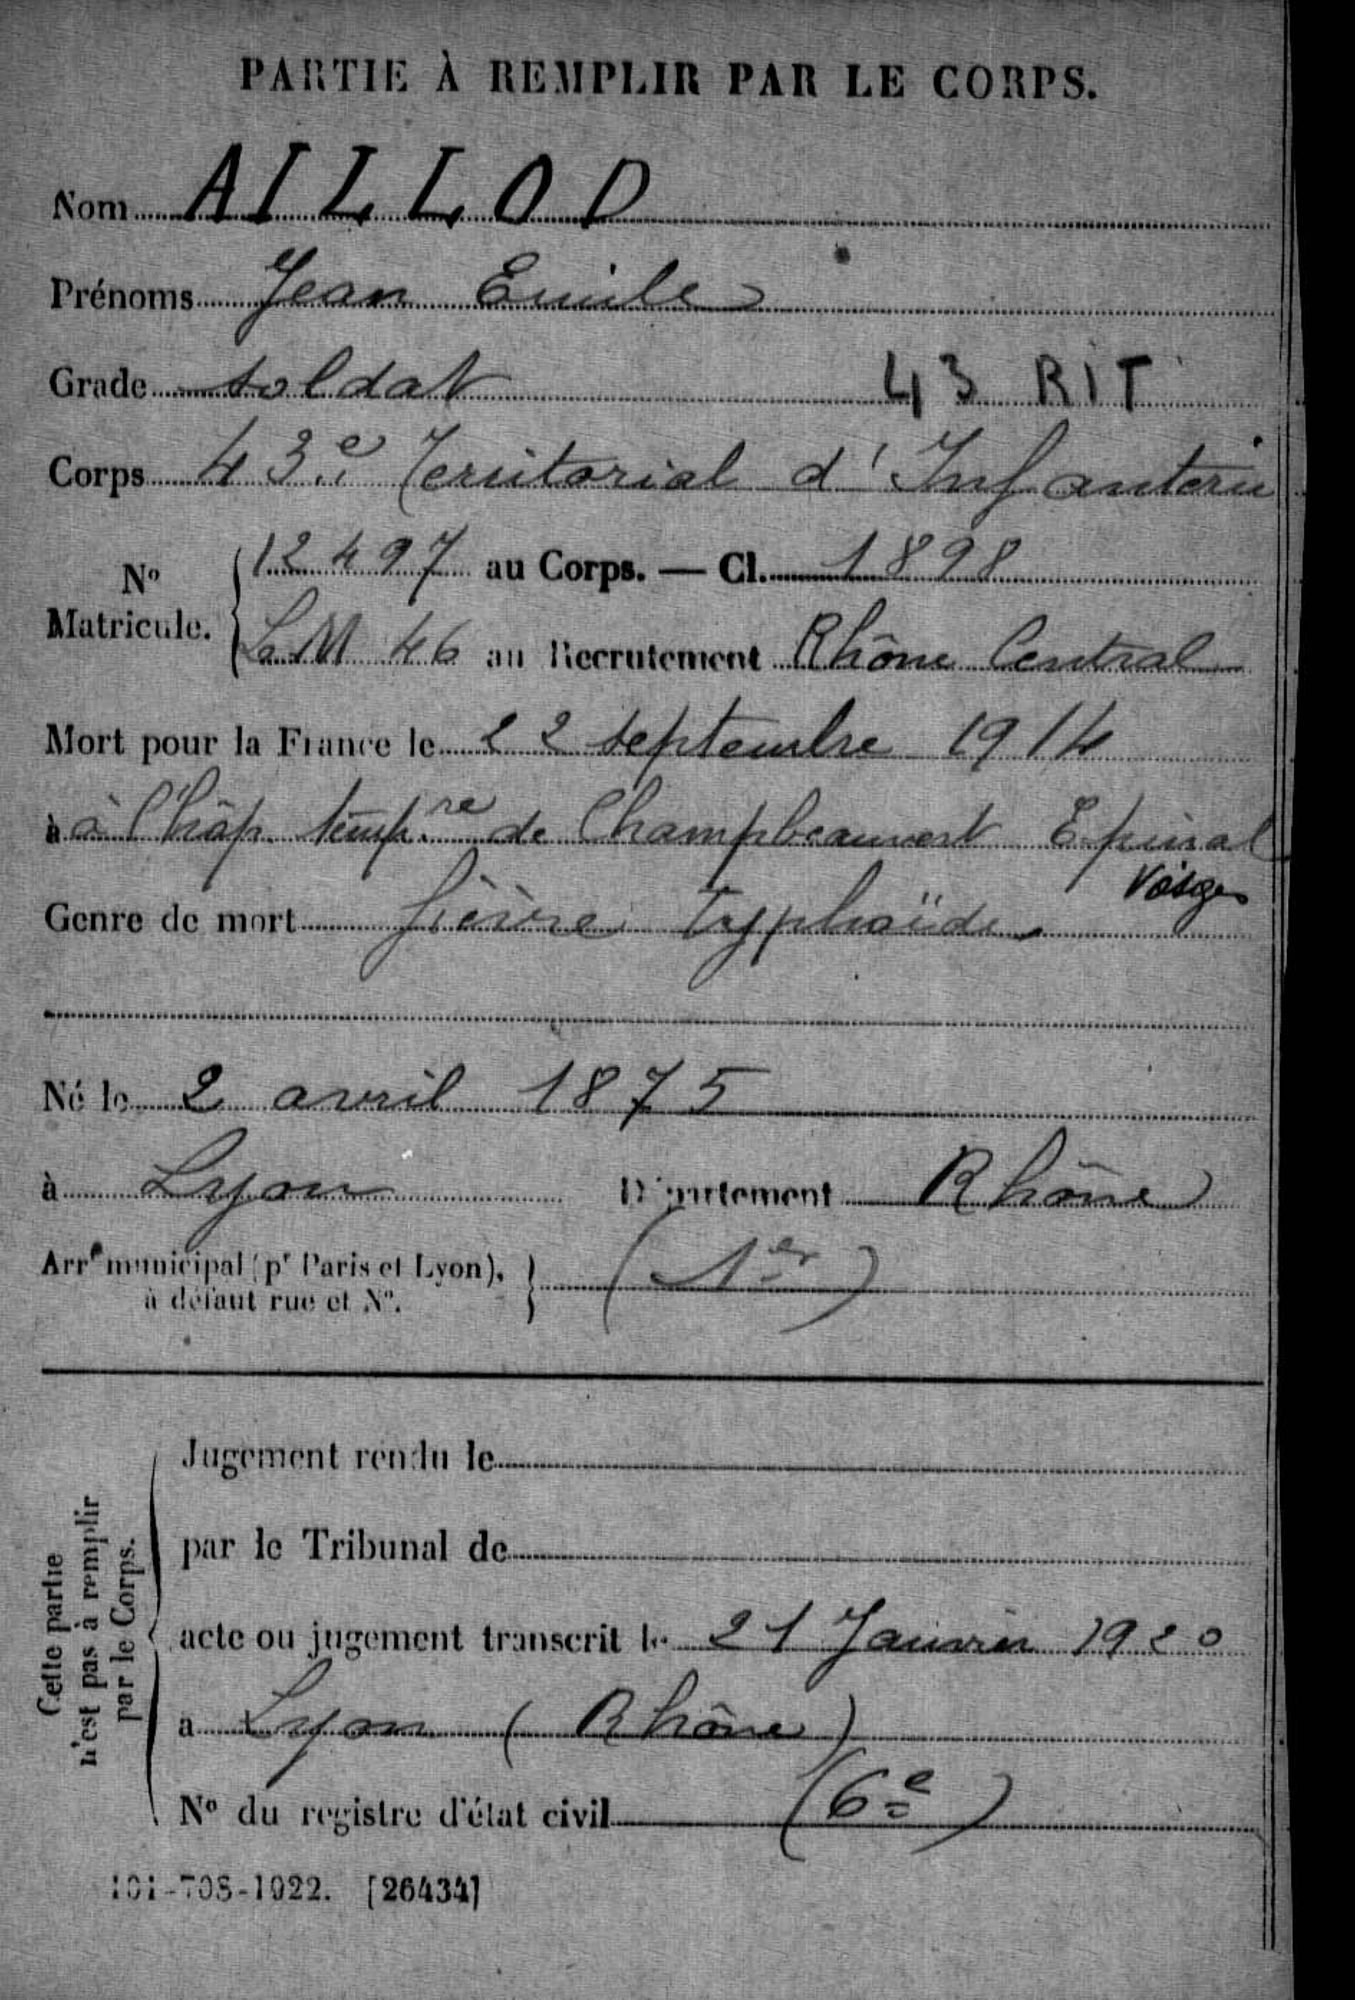 PARTIE À REMPLIR PAR LE CORPS.
Nom AILLOD
Prénoms Jean Emile
Grade soldat 43 RIT
Corps 43e Territorial d'Infanterie
No Matricule. 12497 au Corps. — Cl. 1898
LM 46 au Recrutement Rhône Central
Mort pour la France le 22 septembre 1914
à à l'hôp. temp.re de Champbeauvert Epinal
Vosges
Genre de mort fièvre typhoïde
Né le 2 avril 1875
à Lyon Département Rhône
Arrt municipal (pr Paris et Lyon), à défaut rue et No. (1er)
Cette partie n'est pas à remplir par le Corps.
Jugement rendu le
par le Tribunal de
acte ou jugement transcrit le 21 Janvier 1920
à Lyon (Rhône)
No du registre d'état civil (6e)
101-708-1922. [26434]